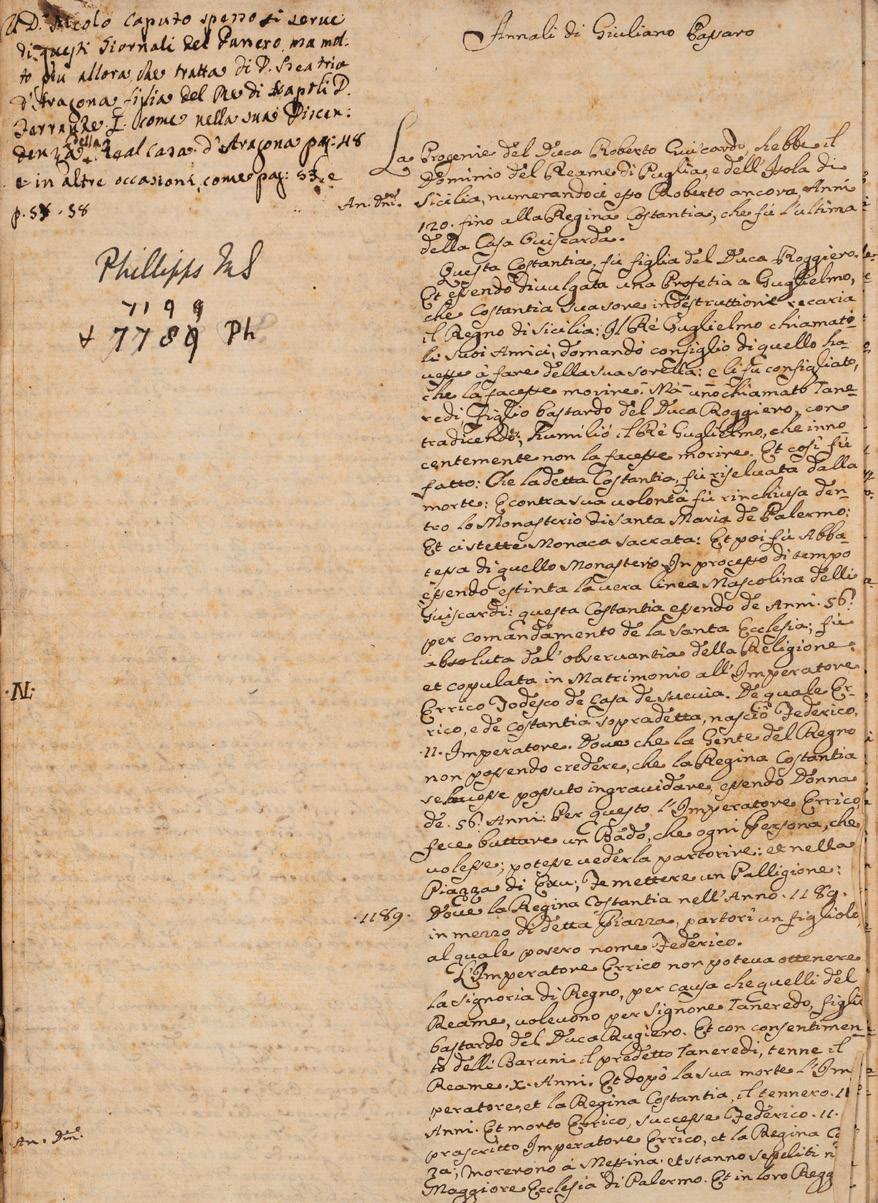 D. Nicolo Caputo spesso si serue
di questi Giornali del Passero, ma mol-
to più allora che tratta di D. Beatrice
d'Aragona figlia del Re di Napoli D.
Ferrante I. come nella sua Discen:
denza della Real casa d'Aragona pag: 48
e in altre occasioni come pag: 53, e
p. 58
Phillipps MS
7199
7789 Ph
·N·
An. Dñi.
Annali di Giuliano Passaro
La Progenie del Duca Roberto Guiscardo, hebbe il
Dominio del Reame di Puglia, e dell'Isola di
An. dñi. Sicilia, numerandoci esso Roberto ancora, Anni
120. fino alla Regina Costantia, che fù l'ultima
della Casa Guiscarda.
Questa Costantia, fù figlia del Duca Roggiero.
Et essendo diuulgata una Profetia a Guglielmo,
che Costantia sua sore in destruttione
il Regno di Sicilia: Il Rè Guglielmo chiamato
li suoi Amici, domandò consiglio di quello ha-
uesse à fare della sua sorella: e li fù consigliato,
che la facesse morire. Mà uno chiamato Tanc-
redi figlio bastardo del Duca Roggiero, con-
tradicendo, humiliò il Rè Guglielmo, che inno-
centemente non la facesse morire. Et così fù
fatto: Che la detta Costantia, fù riseluata dalla
morte: E contra sua uolontà fù rinchiusa den-
tro lo Monasterio di Santa Maria de Palermo:
Et ci stette Monaca sacrata: Et poi fù Abba-
tessa di quello Monasterio. In processo di tempo
essendo estinta la uera linea Mascolina delli
Guiscardi: questa Costantia essendo de Anni. 56:
per comandamento de la Santa Ecclesia; fù
absoluta dal'obseruantia della Religione:
et copulata in Matrimonio all'Imperatore
Errico Todesco de Casa de Sueuia. De quale Er-
rico, e de Costantia sopradetta, nasciò Federico.
·II· Imperatore. Doue che la Gente del Regno
non possendo credere, che la Regina Costantia
se hauesse possuto ingrauidare, essendo Donna
de. 56. Anni: Per questo l'Imperatore Errico
fece buttare un Bãdo, che ogni Persona, che
uolesse; potesse uederla partorire: et nella
Piazza di fe mettere un Palligione:
·1189· Doue la Regina Costantia nell'Anno. 1189.
in mezzo di detta Piazza, partorì un figliolo,
al quale posero nome Federico.
L'Imperatore Errico non poteua ottenere
la Signoria di Regno, per causa che quelli del
Reame, uoleuono per Signore Tancredo, figlio
bastardo del Duca Rugiero. Et con consentimen-
to delli Baruni il predetto Tancredi, tenne il
Reame. X. Anni. Et dopò la sua morte l'Im-
peratore, et la Regina Costantia, il tennero.
Anni. Et morto Errico, successe Federico. II.
prascritto Imperatore Errico, et la Regina
morerono à Messina, et stanno sepeliti
Maggiore Ecclesia di Palermo. Et in loro